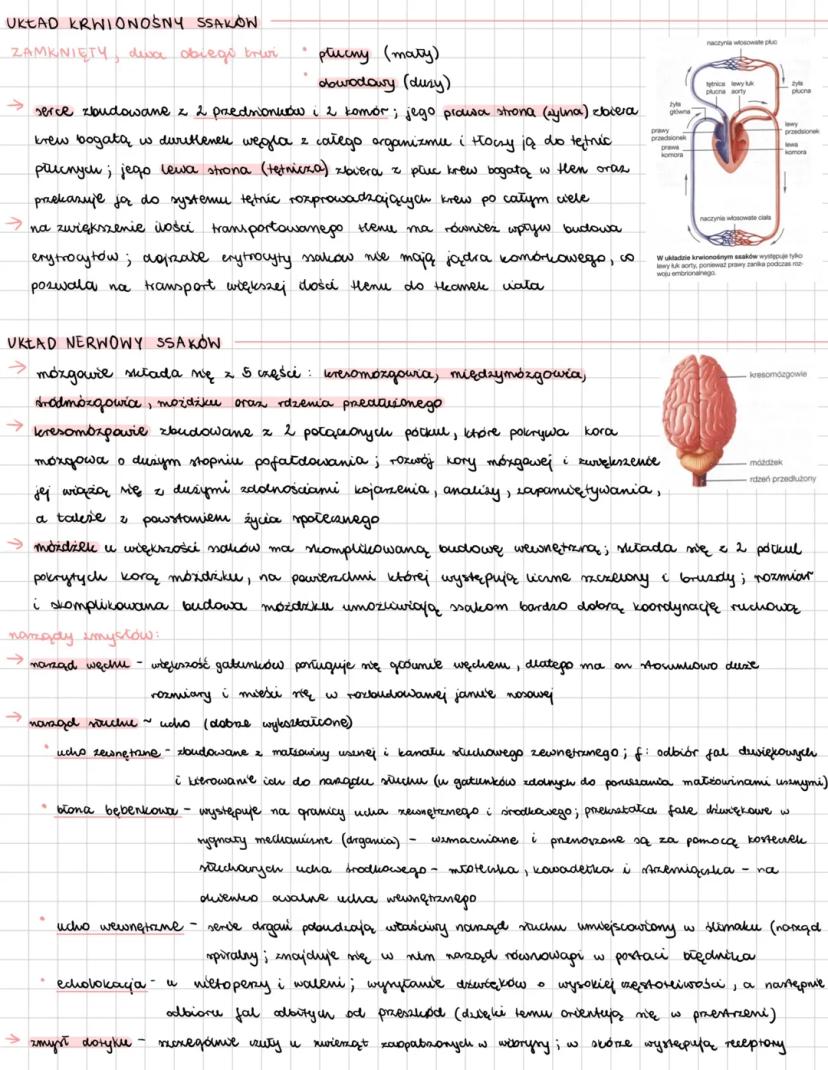 UKŁAD KRWIONOŚNY SSAKÓW
ZAMKNIĘTY, dwa obiegi krwi • płucny (mały)
• obwodowy (duży)
→ serce zbudowane z 2 przedsionków i 2 komór; jego prawa strona (żylna) zbiera
krew bogatą w dwutlenek węgla z całego organizmu i tłoczy ją do tętnic
płucnych; jego lewa strona (tętnicza) zbiera z płuc krew bogatą w tlen oraz
przekazuje ją do systemu tętnic rozprowadzających krew po całym ciele
→ na zwiększenie ilości transportowanego tlenu ma również wpływ budowa
erytrocytów; dojrzałe erytrocyty ssaków nie mają jądra komórkowego, co
pozwala na transport większej ilości tlenu do tkanek ciała
naczynia włosowate płuc
tętnica płucna
lewy łuk aorty
żyła płucna
żyła główna
prawy przedsionek
lewy przedsionek
prawa komora
lewa komora
naczynia włosowate ciała
W układzie krwionośnym ssaków występuje tylko
lewy łuk aorty, ponieważ prawy zanika podczas roz-
woju embrionalnego.
UKŁAD NERWOWY SSAKÓW
→ mózgowie składa się z 5 części: kresomózgowia, międzymózgowia,
śródmózgowia, móżdżku oraz rdzenia przedłużonego
→ kresomózgowie zbudowane z 2 połączonych półkul, które pokrywa kora
mózgowa o dużym stopniu pofałdowania; rozwój kory mózgowej i zwiększenie
jej wiążą się z dużymi zdolnościami kojarzenia, analizy, zapamiętywania,
a także z powstaniem życia społecznego
kresomózgowie
móżdżek
rdzeń przedłużony
→ móżdżek u większości ssaków ma skomplikowaną budowę wewnętrzną; składa się z 2 półkul
pokrytych korą móżdżku, na powierzchni której występują liczne szczeliny i bruzdy; rozmiar
i skomplikowana budowa móżdżku umożliwiają ssakom bardzo dobrą koordynację ruchową
narządy zmysłów:
→ narząd węchu - większość gatunków posługuje się głównie węchem, dlatego ma on stosunkowo duże
rozmiary i mieści się w rozbudowanej jamie nosowej
→ narząd słuchu ~ ucho (dobrze wykształcone)
• ucho zewnętrzne - zbudowane z małżowiny usznej i kanału słuchowego zewnętrznego; f: odbiór fal dźwiękowych
i kierowanie ich do narządu słuchu (u gatunków zdolnych do poruszania małżowinami usznymi)
• błona bębenkowa - występuje na granicy ucha zewnętrznego i środkowego; przekształca fale dźwiękowe w
sygnały mechaniczne (drgania) - wzmacniane i przenoszone są za pomocą kosteczek
słuchowych ucha środkowego - młoteczka, kowadełka i strzemiączka - na
okienko owalne ucha wewnętrznego
• ucho wewnętrzne - serie drgań pobudzają właściwy narząd słuchu umiejscowiony w ślimaku (narząd
spiralny; znajduje się w nim narząd równowagi w postaci błędnika
• echolokacja - u nietoperzy i waleni; wysyłanie dźwięków o wysokiej częstotliwości, a następnie
odbioru fal odbitych od przeszkód (dzięki temu orientują się w przestrzeni)
→ zmysł dotyku - szczególnie czuły u zwierząt zaopatrzonych w wibrysy; w skórze występują receptory